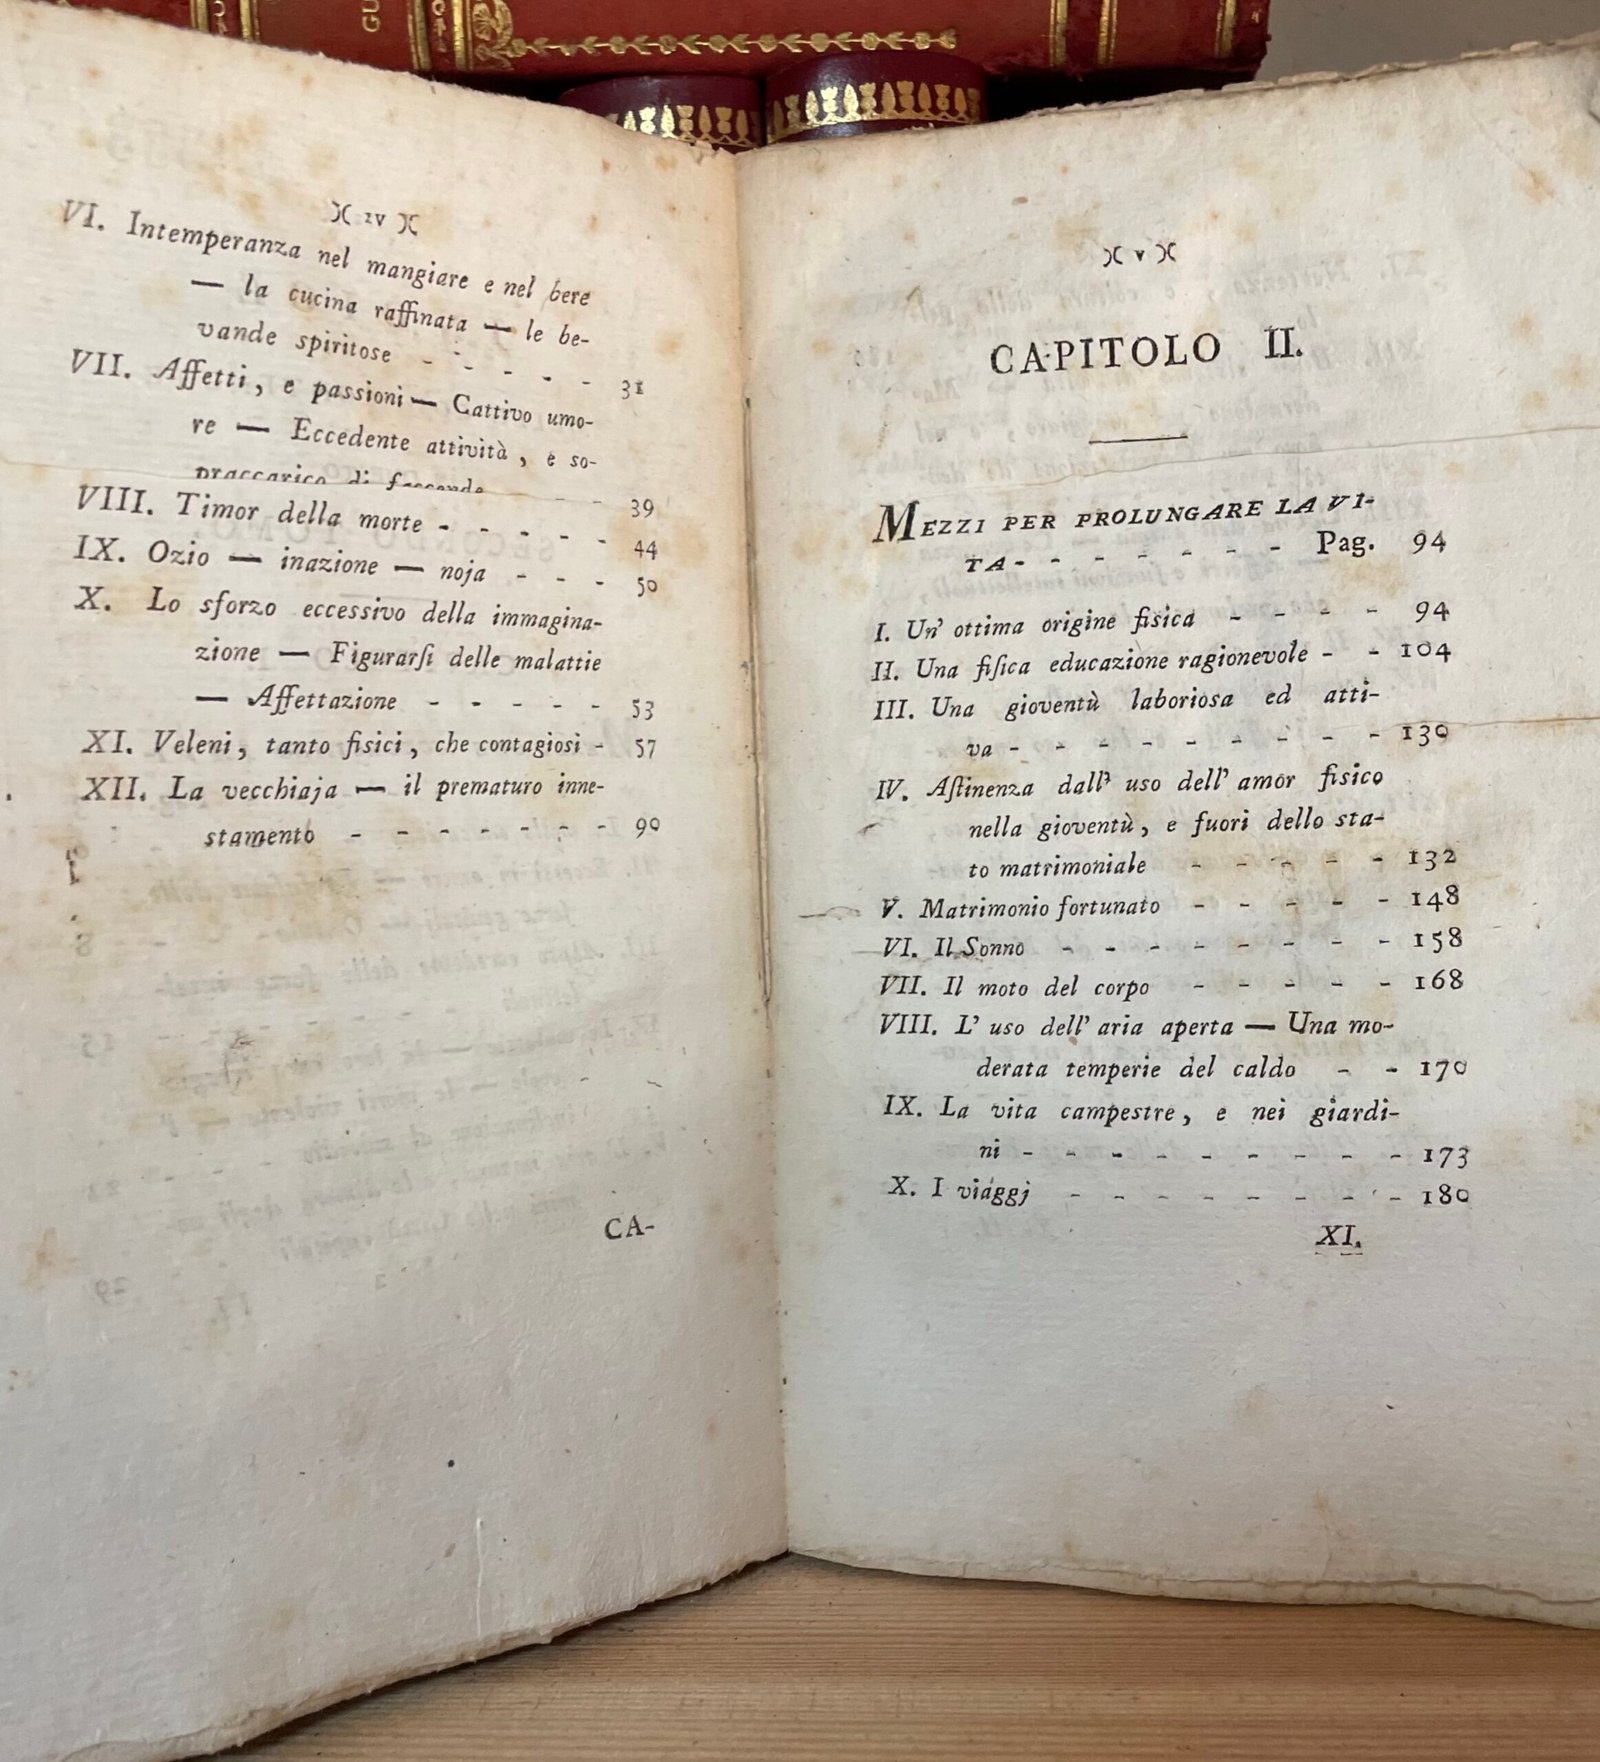 IV
VI. Intemperanza nel mangiare e nel bere
— la cucina raffinata — le be-
vande spiritose - - - - - 31
VII. Affetti, e passioni — Cattivo umo-
re — Eccedente attività, e so-
praccarico di faccende - - 39
VIII. Timor della morte - - - - - 44
IX. Ozio — inazione — noja - - - 50
X. Lo sforzo eccessivo della immagina-
zione — Figurarſi delle malattie
— Affettazione - - - - - 53
XI. Veleni, tanto fisici, che contagiosi - 57
XII. La vecchiaja — il prematuro inne-
stamento - - - - - - - 90
CA-
V
CAPITOLO II.
MEZZI PER PROLUNGARE LA VI-
TA - - - - - - - Pag. 94
I. Un' ottima origine fisica - - - - 94
II. Una fiſica educazione ragionevole - - 104
III. Una gioventù laboriosa ed atti-
va - - - - - - - - - 130
IV. Aſtinenza dall' uso dell' amor fisico
nella gioventù, e fuori dello sta-
to matrimoniale - - - - - 132
V. Matrimonio fortunato - - - - - 148
VI. Il Sonno - - - - - - - - 158
VII. Il moto del corpo - - - - - 168
VIII. L' uso dell' aria aperta — Una mo-
derata temperie del caldo - - 170
IX. La vita campestre, e nei giardi-
ni - - - - - - - - - 173
X. I viaggj - - - - - - - - 180
XI.